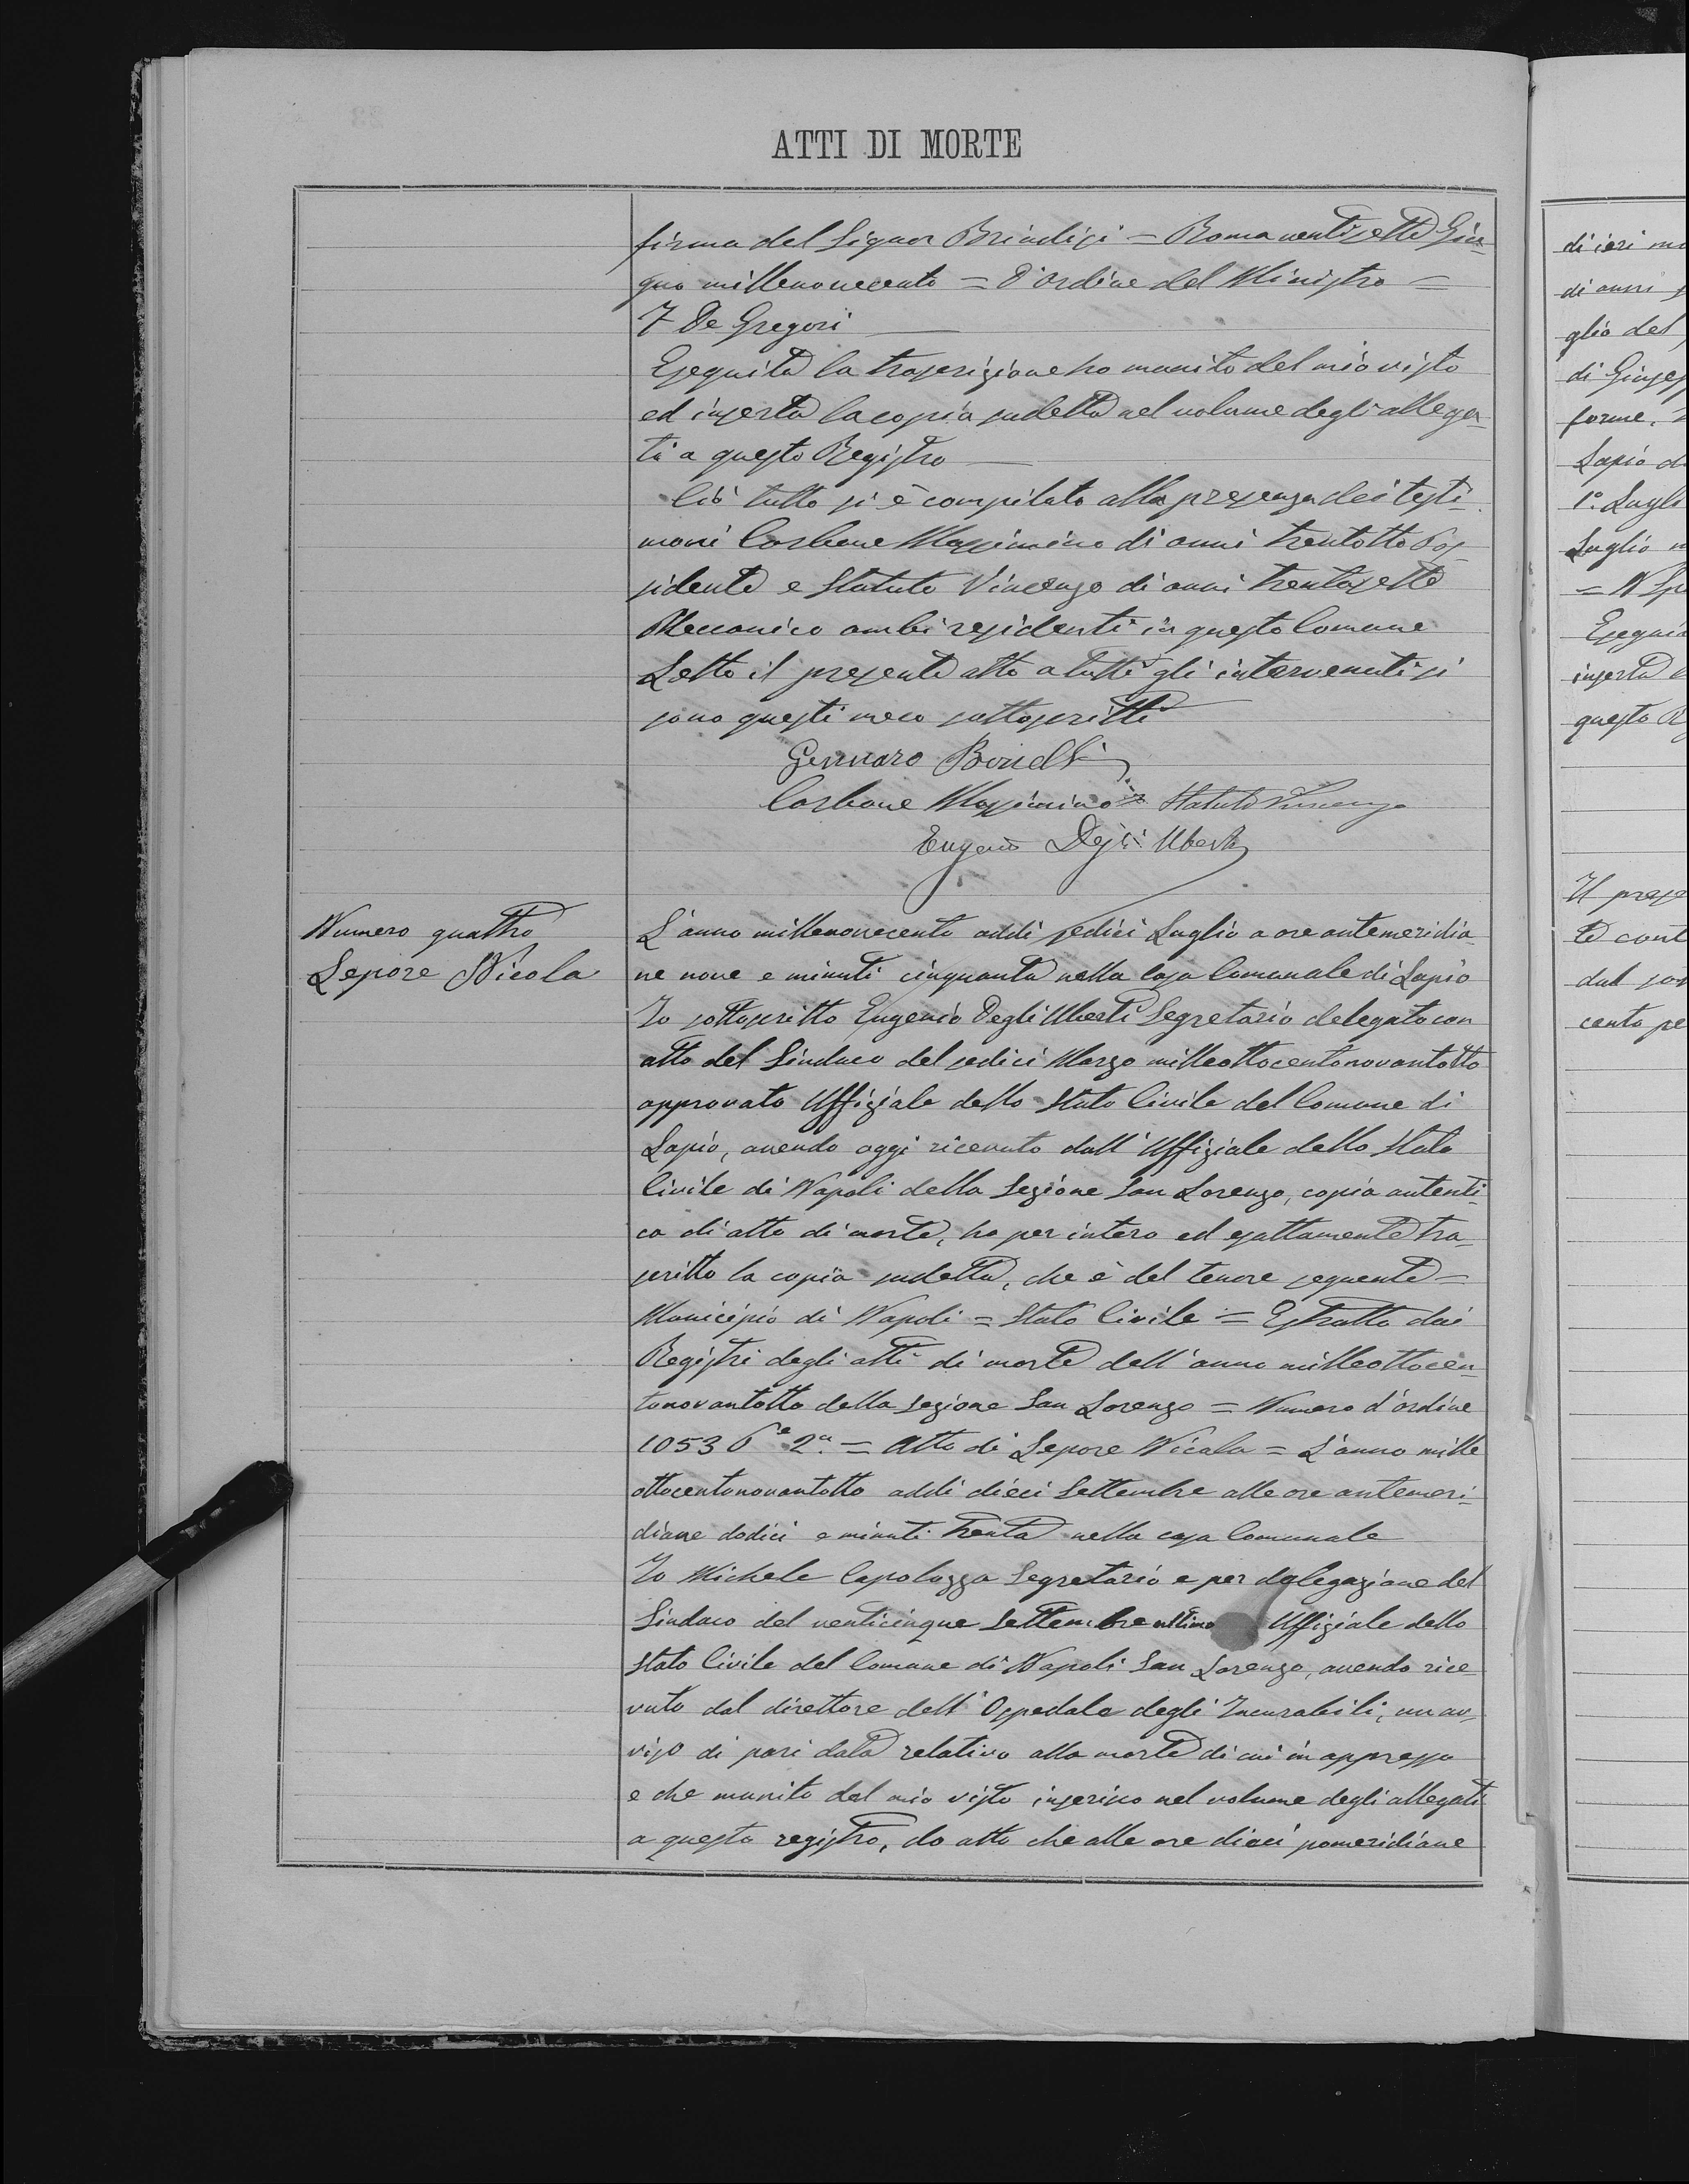 ATTI DI MORTE
firma del Signor Brindisi = Roma ventisette Giu-
gno millenovecento = D'Ordine del Ministro =
F De Gregori
Eseguita la trascrizione ho munito del mio visto
ed inserta la copia sudetta nel volume degli allega-
ti a questo Registro
Ciò tutto si è compilato alla presenza dei testi-
moni Carbone Massimino di anni trentotto Pos
sidente e Statuto Vincenzo di anni trentasette
Meccanico ambi residenti in questo Comune
Letto il presente atto a tutti gli intervenuti si
sono questi meco sottoscritti
Gennaro
Carbone Massimino Statuto Vincenzo
Eugenio Degli Uberti
Numero quattro
Lepore Nicola
L'anno millenovecento addi sedici Luglio a ore antemeridia-
ne nove e minuti cinquanta nella Casa Comunale di Lapio
Io sottoscritto Eugenio Degli Uberti Segretario delegato con
atto del Sindaco del sedici Marzo milleottocentonovantotto
approvato Uffiziale dello Stato Civile del Comune di
Lapio, avendo oggi ricevuto dall'Uffiziale dello Stato
Civile di Napoli della Sezione San Lorenzo, copia autenti-
ca di atto di morte, ho per intero ed esattamente tra-
scritto la copia sudetta, che è del tenore seguente =
Municipio di Napoli = Stato Civile = Estratto dai
Registri degli atti di morte dell'anno milleottocen-
tonovantotto della sezione San Lorenzo = Numero d'ordine
1053 Pe 2a = Atto di Lepore Nicola = L'anno mille
ottocentonovantotto addi dieci Settembre alle ore antemeri-
diane dodici e minuti trenta nella casa Comunale
Io Michele Capolozza Segretario e per delegazione del
Sindaco del venticinque Settembre ultimo Uffiziale dello
Stato Civile del Comune di Napoli San Lorenzo, avendo rice
vuto dal direttore dell'Ospedale degli Incurabili, un av-
viso di pari data relativo alla morte di cui in appresso
e che munito del mio visto inserisco nel volume degli allegati
a questo registro, do atto che alle ore dieci pomeridiane
di ieri
di anni
glio del
di Giusep
forme.
Lapio d
1° Lugl
Luglio
Esegui
inserta
questo R
Il prese
te cont
dal
cento pe